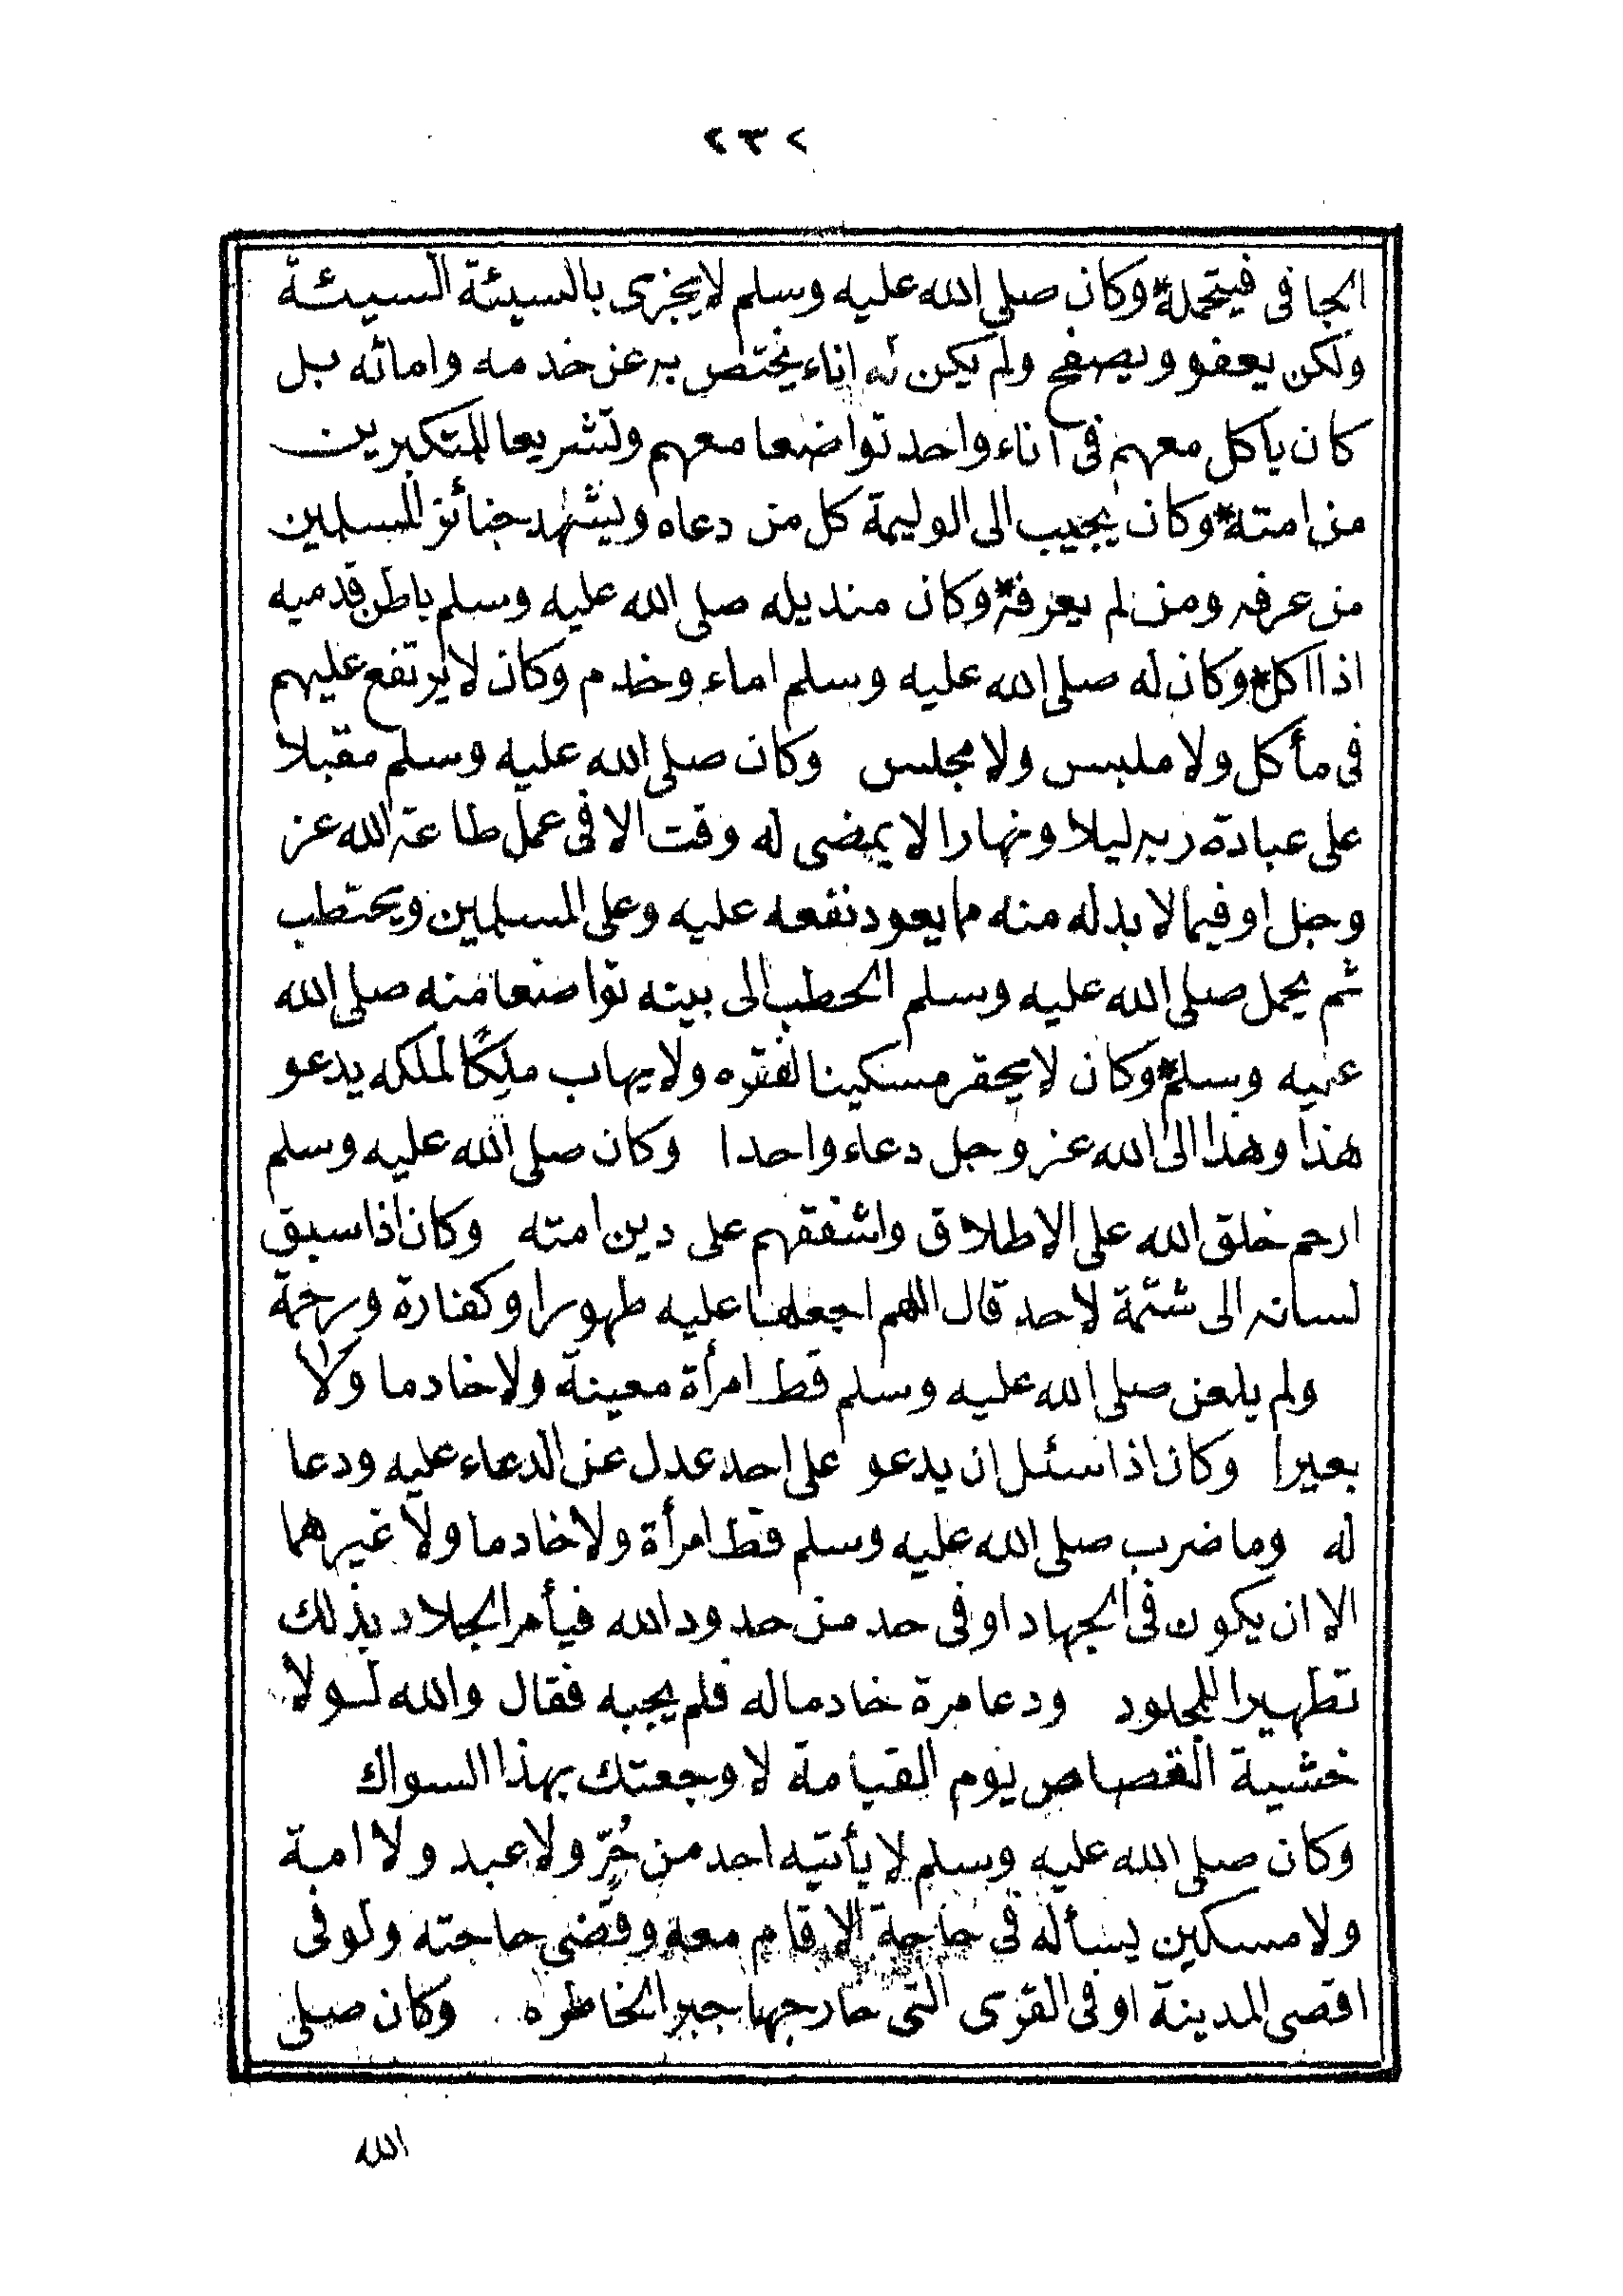 ٢٣٢
الجافى فيتحمله* وكان صلى الله عليه وسلم لا يجزى بالسيئة السيئة
ولكن يعفو ويصفح ولم يكن له اناء يختص به عن خدمه وامائه بل
كان ياكل معهم فى اناء واحد تواضعا معهم وتشريعا للمتكبرين
من امته* وكان يجيب الى الوليمة كل من دعاه ويشهد جنائز المسلمين
من عرفه ومن لم يعرفه* وكان منديله صلى الله عليه وسلم باطن قدميه
اذا اكل* وكان له صلى الله عليه وسلم اماء وخدم وكان لا يرتفع عليهم
فى مأكل ولا ملبس ولا مجلس وكان صلى الله عليه وسلم مقبلا
على عبادة ربه ليلا ونهارا لا يمضى له وقت الا فى عمل طاعة الله عز
وجل او فيما لا بد له منه مما يعود نفعه عليه وعلى المسلمين ويحتطب
ثم يحمل صلى الله عليه وسلم الحطب الى بيته تواضعا منه صلى الله
عليه وسلم* وكان لا يحقر مسكينا لفقره ولا يهاب ملِكًا لملكه يدعو
هذا وهذا الى الله عز وجل دعاء واحدا وكان صلى الله عليه وسلم
ارحم خلق الله على الاطلاق واشفقهم على دين امته وكان اذا سبق
لسانه الى شتمة لاحد قال اللهم اجعلها عليه طهورا وكفارة ورحمة
ولم يلعن صلى الله عليه وسلم قط امرأة معينة ولا خادما ولا
بعيرا وكان اذا سئل ان يدعو على احد عدل عن الدعاء عليه ودعا
له وما ضرب صلى الله عليه وسلم قط امرأة ولا خادما ولا غيرهما
الا ان يكون فى الجهاد او فى حد من حدود الله فيأمر الجلاد بذلك
تطهيرا للمجلود ودعا مرة خادما له فلم يجبه فقال والله لولا
خشية القصاص يوم القيامة لاوجعتك بهذا السواك
وكان صلى الله عليه وسلم لا يأتيه احد من حُرٍّ ولا عبد ولا امة
ولا مسكين يسأله فى حاجة الا قام معه وقضى حاجته ولو فى
اقصى المدينة او فى القرى التى خارجها جبرا لخاطره وكان صلى
الله